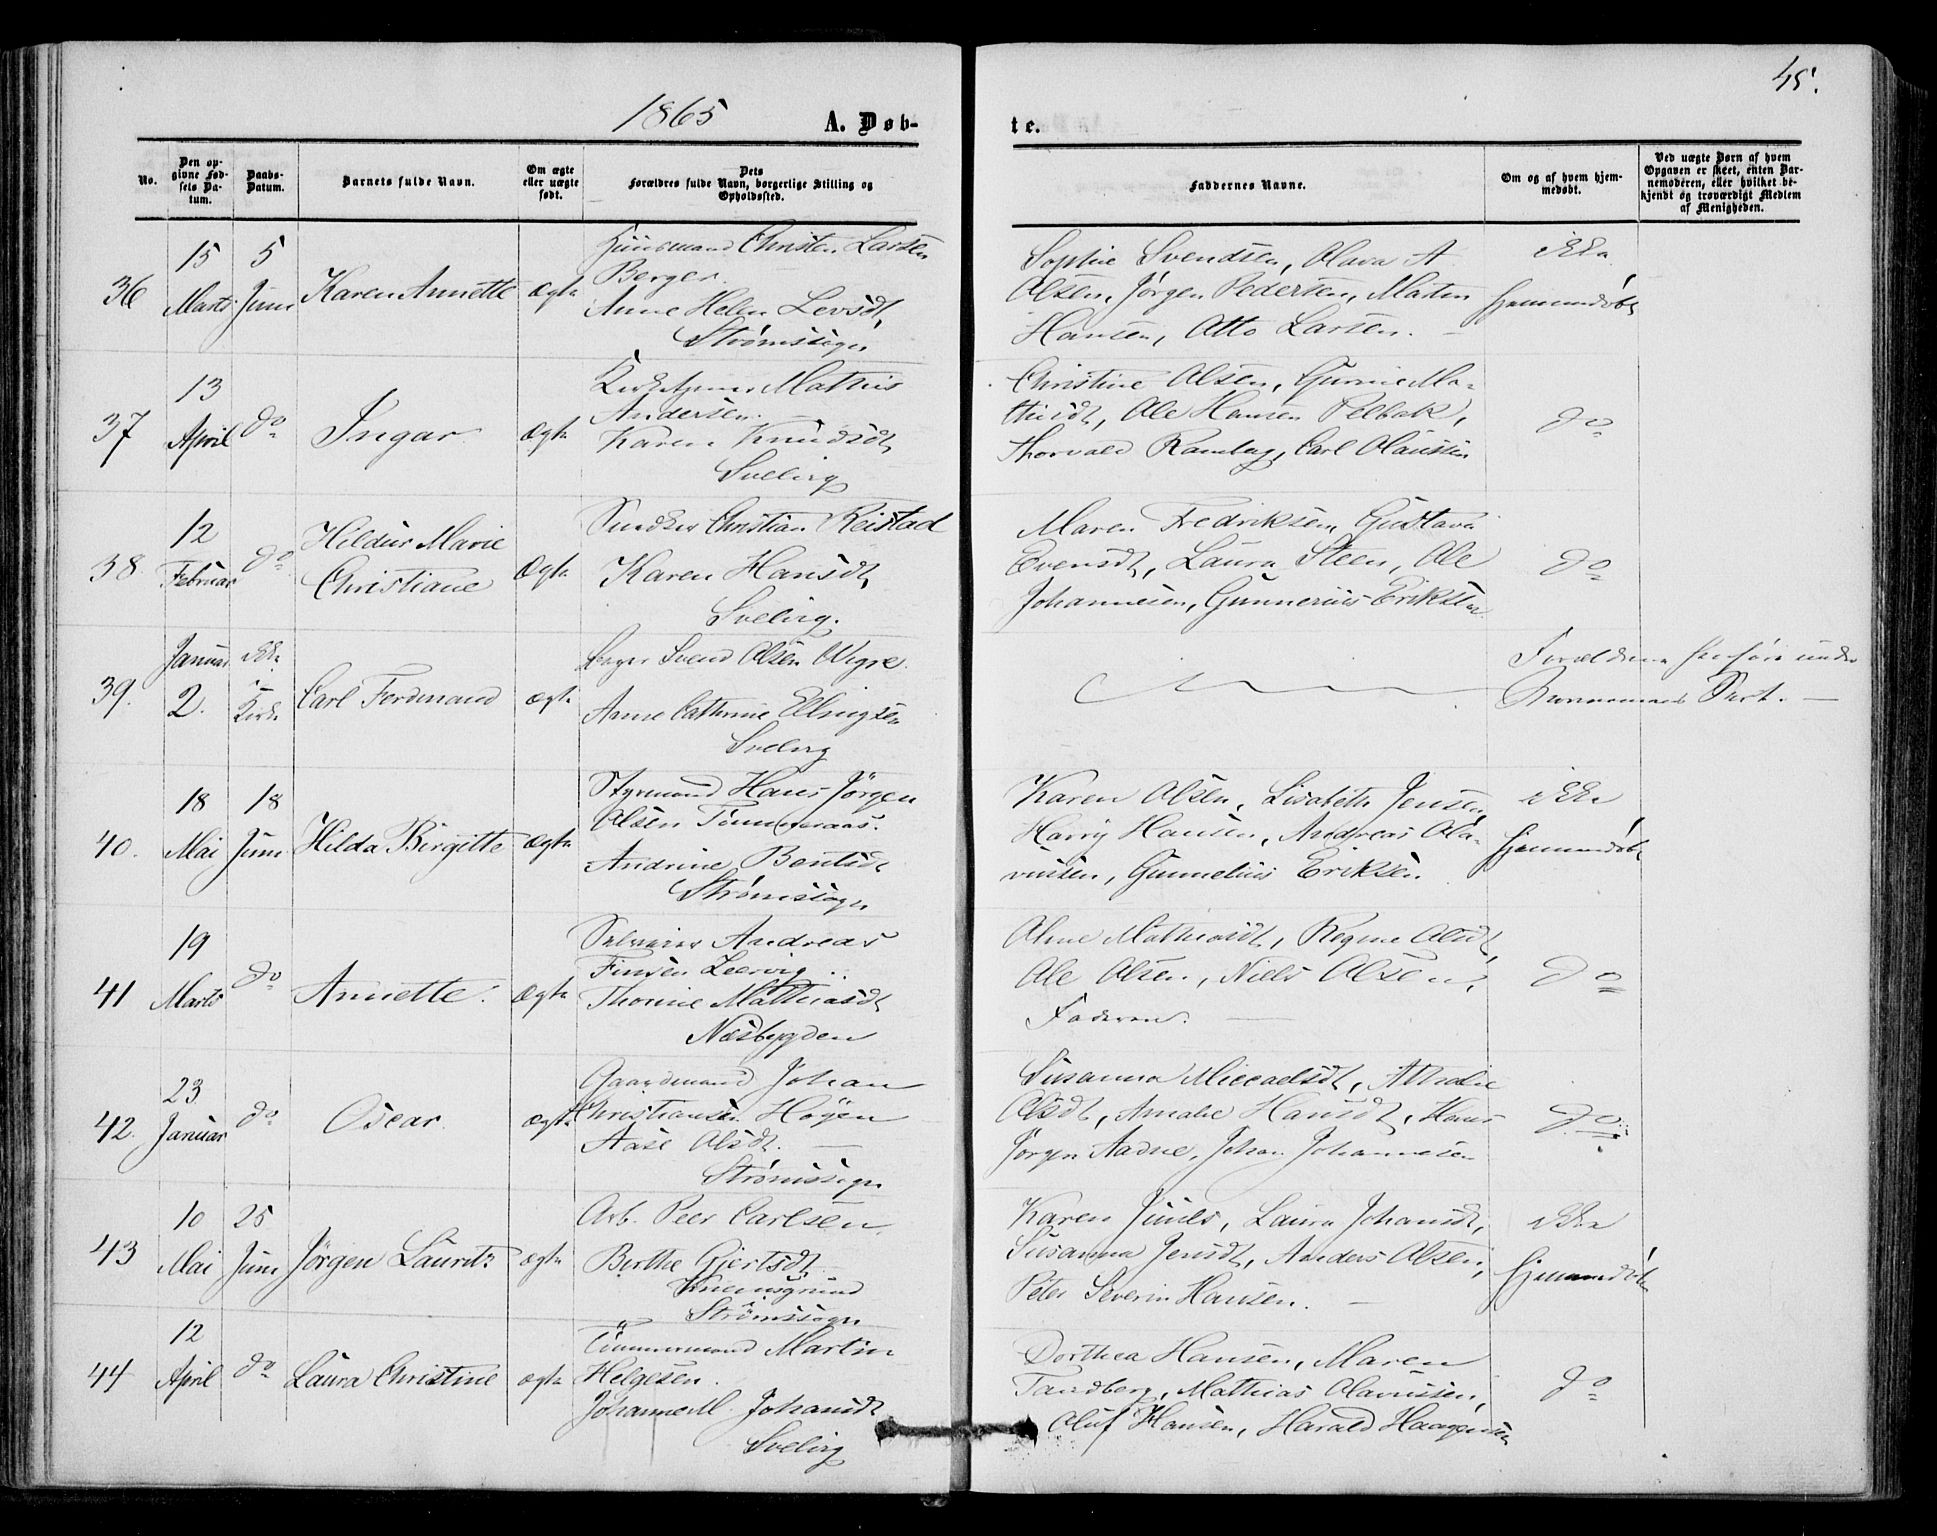 45.
1865
A. Døb-
te.
No.
Den op-
givne Fød-
sels Da-
tum.
Daabs-
Datum.
Barnets fulde Navn.
Om ægte
eller uægte
født.
Dets
Forældres fulde Navn, borgerlige Stilling og
Opholdssted.
Faddernes Navne.
Om og af hvem hjem-
medøbt.
Ved uægte Børn af hvem
Opgaven er skeet, enten Bar-
nemoderen, eller hvilket be-
kjendt og troværdigt Medlem
af Menigheden.
36
15
Marts
5
Juni
Karen Annette
Ægte
Huusmand Christen Larsen
Berger
Anne Helen Levsdt,
Strømssogn
Sophie Svendsen, Olava A
Olsen, Jørgen Pedersen, Martin
Hansen, Otto Larsen.
ikke
hjemmedøbt
37
13
April
do
Ingar
Ægte
Mathis
Andersen
Karen Knudsdt
Svelvig
Christine Olsen, Gunnie Ma-
thisdt, Ole Hansen Pelbak,
Thorvald Ramberg, Carl Olaussen
do
38
12
Februar
do
Hildur Marie
Christiane
Ægte
Snedker Christian Reistad
Karen Hansdt,
Svelvig.
Maren Fredriksen, Gustava
Evensdt, Laura Steen, Ole
Johannesen, Gunnerius Eriksen
do
39.
Januar
2.
ikke
i
Kirke
Carl Ferdinand
ægte
Svend Olsen Wigre
Anne Cathrine Ellingsen
Svelvig
Forældrene henføre under
40.
18
Mai
18
Juni
Hilda Birgitte
Ægte
Styrmand Hans Jørgen
Olsen Tømmeraas.
Andrine Bentsdt
Strømssogn
Karen Olsen, Lisabeth Jensen,
Harry Hansen, Andreas Ola-
vussen, Gunnelius Eriksen.
ikke
hjemmedøbt
41
19
Marts
do
Annette.
Ægte
Selveier Andreas
Finsen Leervig
Thorine Mathiasdt
Næsbygden
Oline Mathiasdt, Regine Olsdt,
Ole Olsen, Niels Olsen,
Faderen.
do
42.
23
Januar
do
Oscar.
ægte
Gaardmand Johan
Christiansen Høyen
Aase Olsdt.
Strømssogn
Susanna Miccaelsdt, Athalie
Olsdt, Amalie Hansdt, Hans
Jørgen Aadne, Johan Johannesen
do
43
10
Mai
25
Juni
Jørgen Lauritz
ægte
Arb. Peer Carlsen
Berthe Gjertsdt
Strømssogn
Karen Juuls, Laura Johansdt,
Susanna Jensdt, Anders Olsen,
Peter Severin Hansen.
ikke
hjemmedøbt
44
12
April
do
Laura Christine
ægte
Tømmermand Martin
Helgesen.
Johanne M. Johansdt
Svelvig
Dorthea Hansen, Maren
Tandberg, Mathias Olavussen,
Oluf Hansen, Harald Haagensen
do